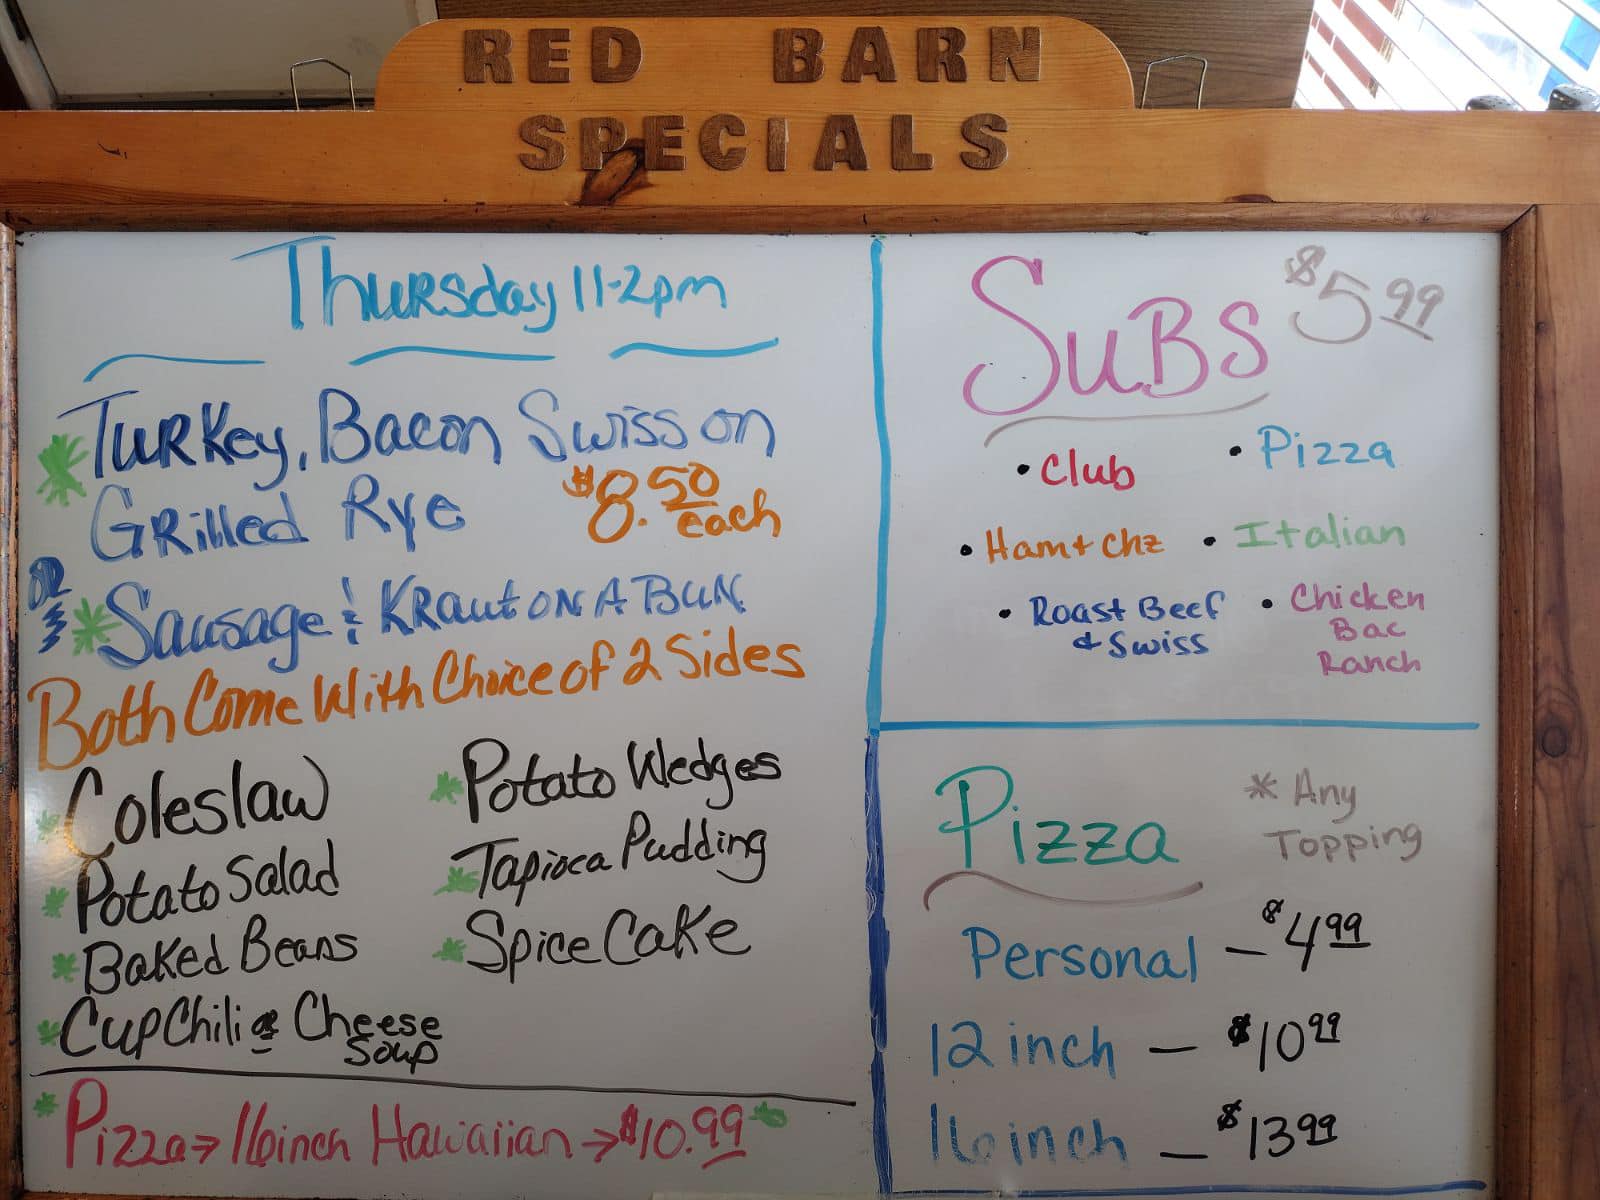 RED BARN
SPECIALS
Thursday 11-2pm
* Turkey, Bacon Swiss on
Grilled Rye $8.50 each
OR
* Sausage & Kraut on A Bun
Both Come With Choice of 2 Sides
* Coleslaw
* Potato Salad
* Baked Beans
* Cup Chili or Cheese Soup
* Potato Wedges
* Tapioca Pudding
* Spice Cake
* Pizza → 16inch Hawaiian → $10.99 *
SuBS $5.99
• Club
• Pizza
• Ham + Chz
• Italian
• Roast Beef
& Swiss
• Chicken
Bac
Ranch
Pizza
* Any
Topping
Personal - $4.99
12 inch - $10.99
16 inch - $13.99